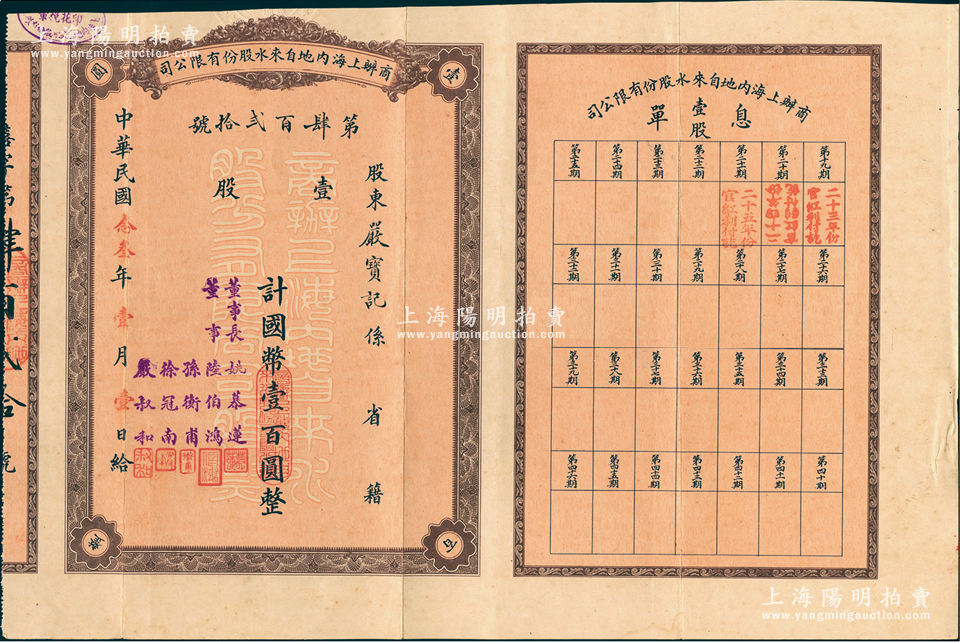 印花稅票
上海陽明拍賣
www.yangmingauction.com
商辦上海內地自來水股份有限公司
壹
百
圓
整
第肆百弍拾號
股東嚴寶記係 省 籍
壹股
計國幣壹百圓整
董事長姚慕蓮
董事陸伯鴻
孫衡甫
徐冠南
嚴叔和
中華民國叁年壹月壹日給
第肆百弍拾號
商辦上海內地自來水股份有限公司
息單
壹股
第十九期
第二十期
第二十一期
第二十二期
第二十三期
第二十四期
第二十五期
二十三年份官紅利付訖
二十五年份官紅利付訖
第二十六期
第二十七期
第二十八期
第二十九期
第三十期
第三十一期
第三十二期
第三十三期
第三十四期
第三十五期
第三十六期
第三十七期
第三十八期
第三十九期
第四十期
第四十一期
第四十二期
第四十三期
第四十四期
第四十五期
第四十六期
上海陽明拍賣
www.yangmingauction.com
上海陽明拍賣
www.yangmingauction.com